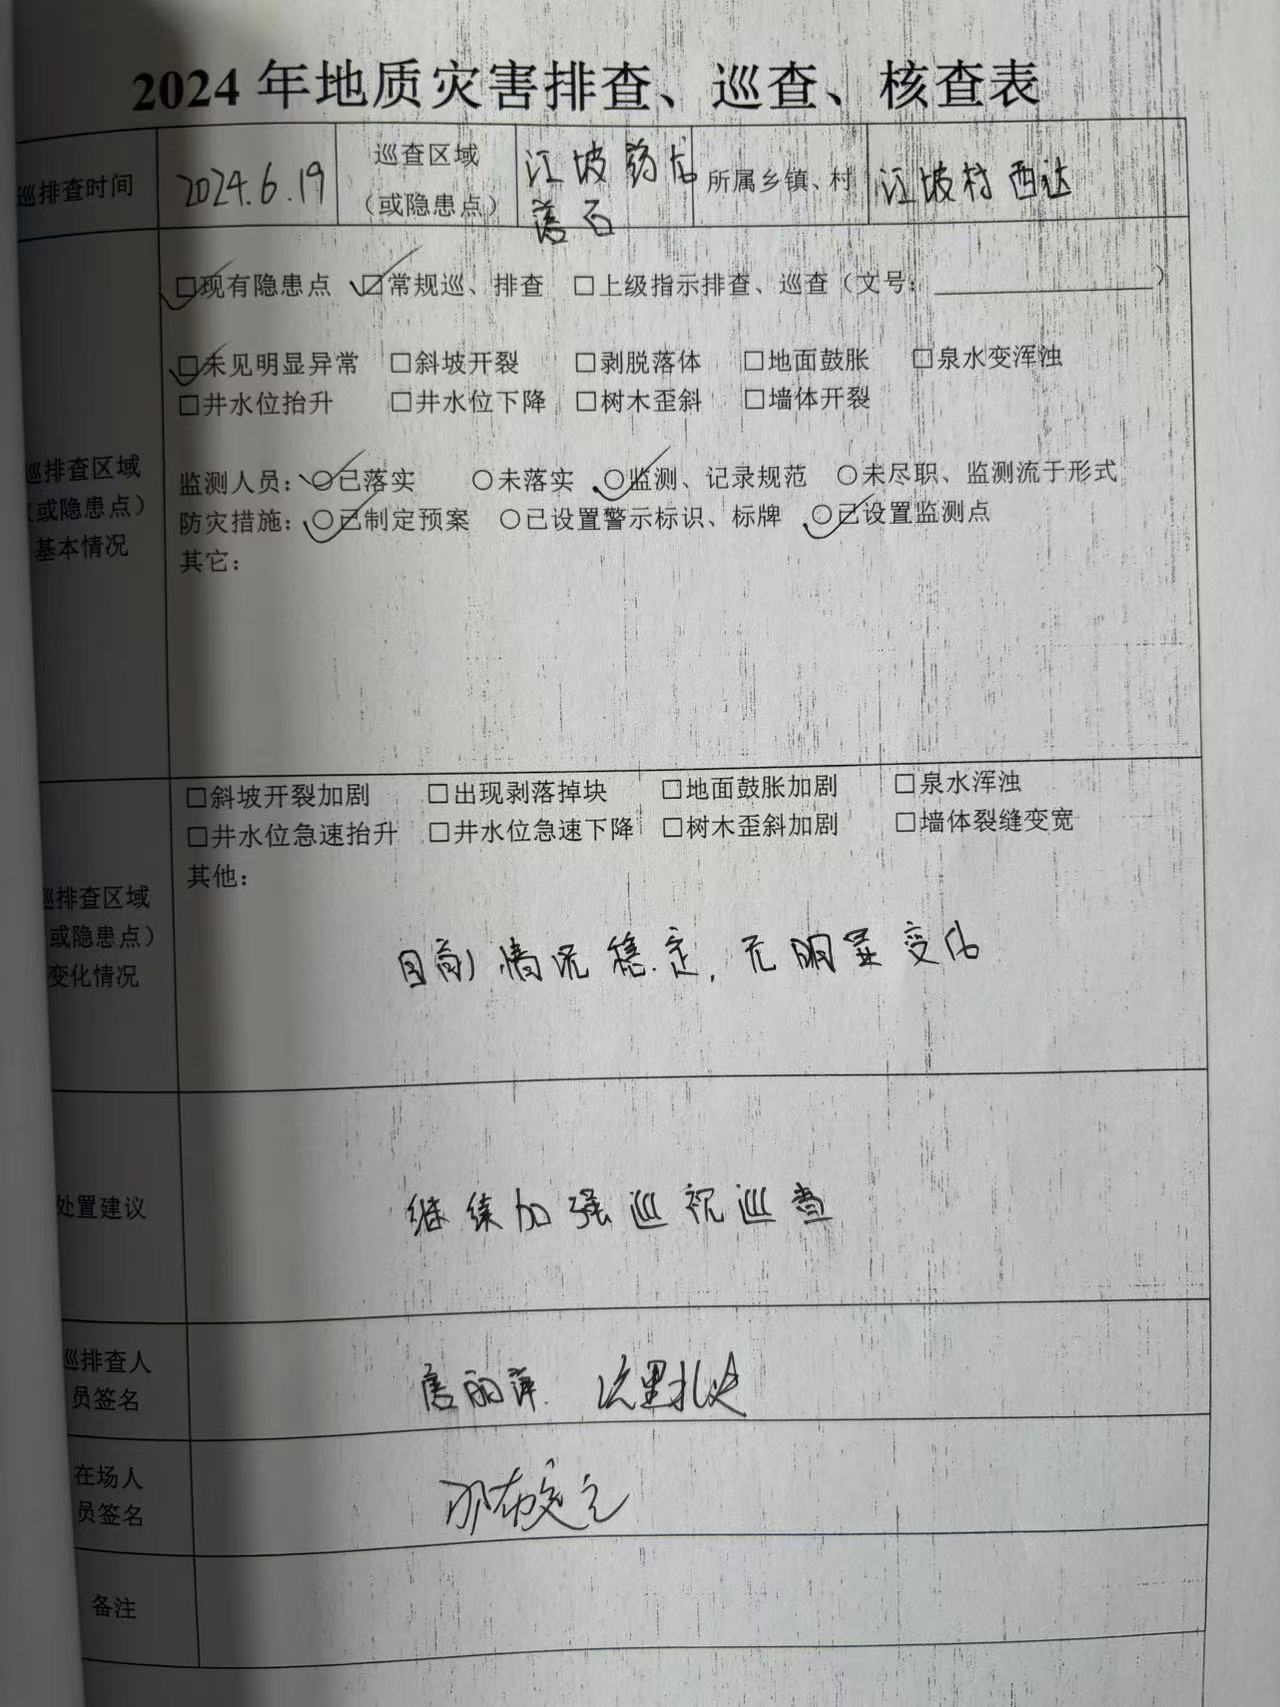 2024年地质灾害排查、巡查、核查表
巡排查时间
2024.6.19
巡查区域
（或隐患点）
江坡药龙
落石
所属乡镇、村
江坡村 西达
□现有隐患点 □常规巡、排查 □上级指示排查、巡查（文号：）
□未见明显异常 □斜坡开裂 □剥脱落体 □地面鼓胀 □泉水变浑浊
□井水位抬升 □井水位下降 □树木歪斜 □墙体开裂
巡排查区域
（或隐患点）
基本情况
监测人员：○已落实 ○未落实 ○监测、记录规范 ○未尽职、监测流于形式
防灾措施：○已制定预案 ○已设置警示标识、标牌 ○已设置监测点
其它：
□斜坡开裂加剧 □出现剥落掉块 □地面鼓胀加剧 □泉水浑浊
□井水位急速抬升 □井水位急速下降 □树木歪斜加剧 □墙体裂缝变宽
其他：
巡排查区域
或隐患点）
变化情况
目前情况稳定，无明显变化
处置建议
继续加强巡视巡查
巡排查人
员签名
唐丽萍
在场人
员签名
备注